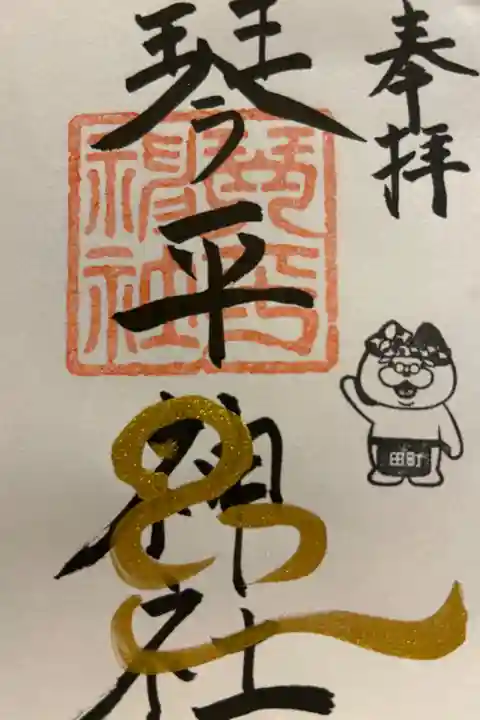 奉拝
琴平神社
琴平
神社
田町